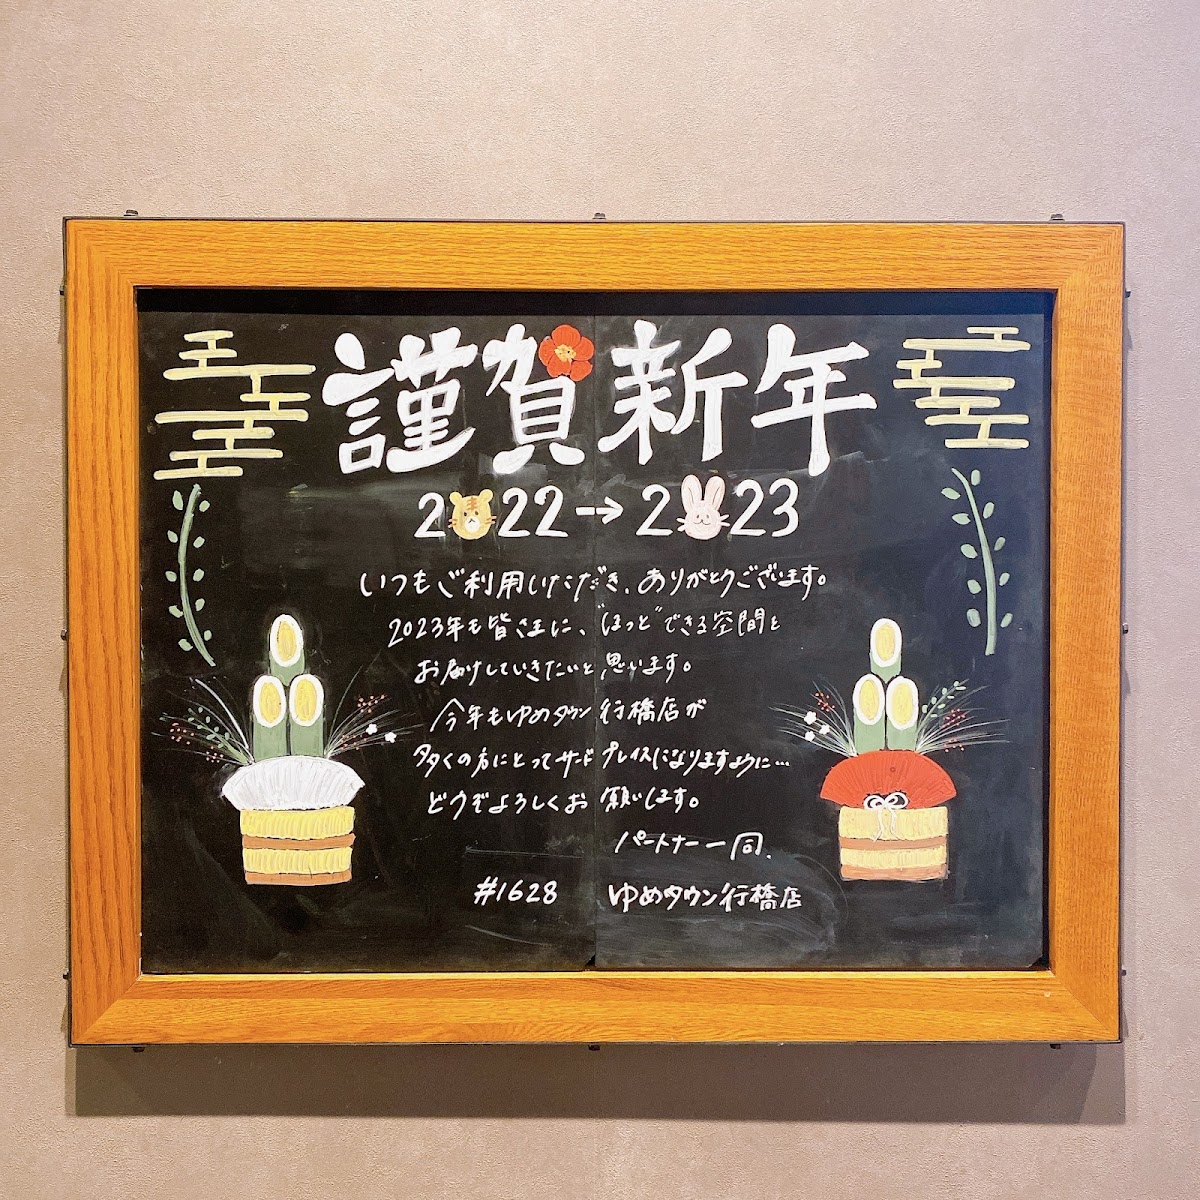 謹賀新年
2022→2023
いつもご利用いただき、ありがとうございます。
2023年も皆さまに、"ほっと"できる空間を
お届けしていきたいと思います。
今年もゆめタウン行橋店が
多くの方にとってサードプレイスになりますように…
どうぞよろしくお願いします。
パートナー一同、
#1628 ゆめタウン行橋店